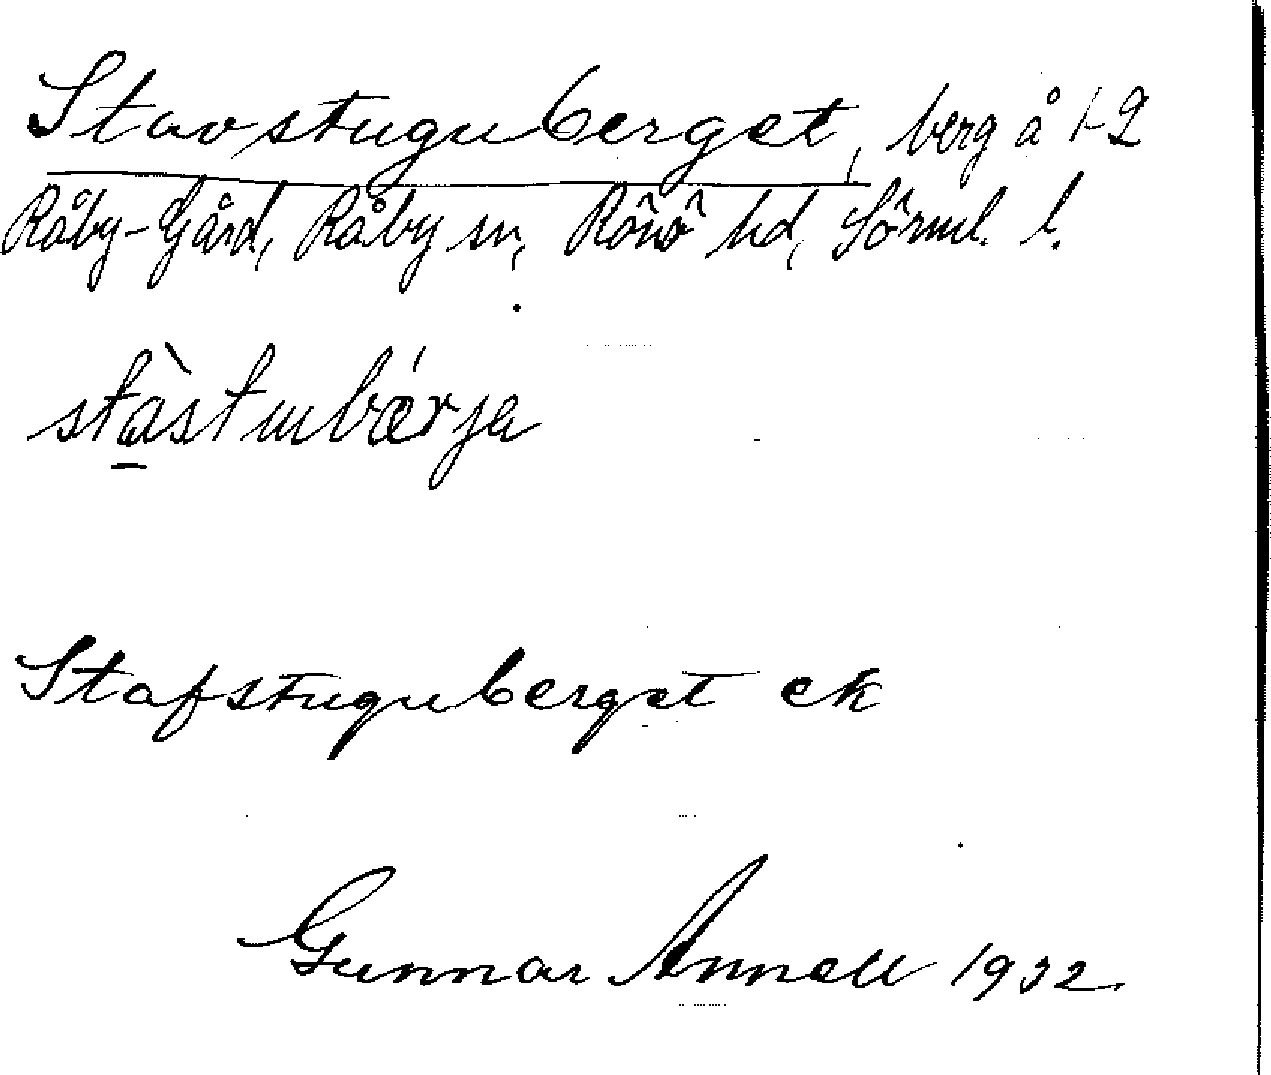 Stavstuguberget, berg å 1-2
Råby-Gård, Råby sn, Rönö hd, Sörml. l.
stàstubérja
Stafstuguberget ek
Gunnar Annell 1932.